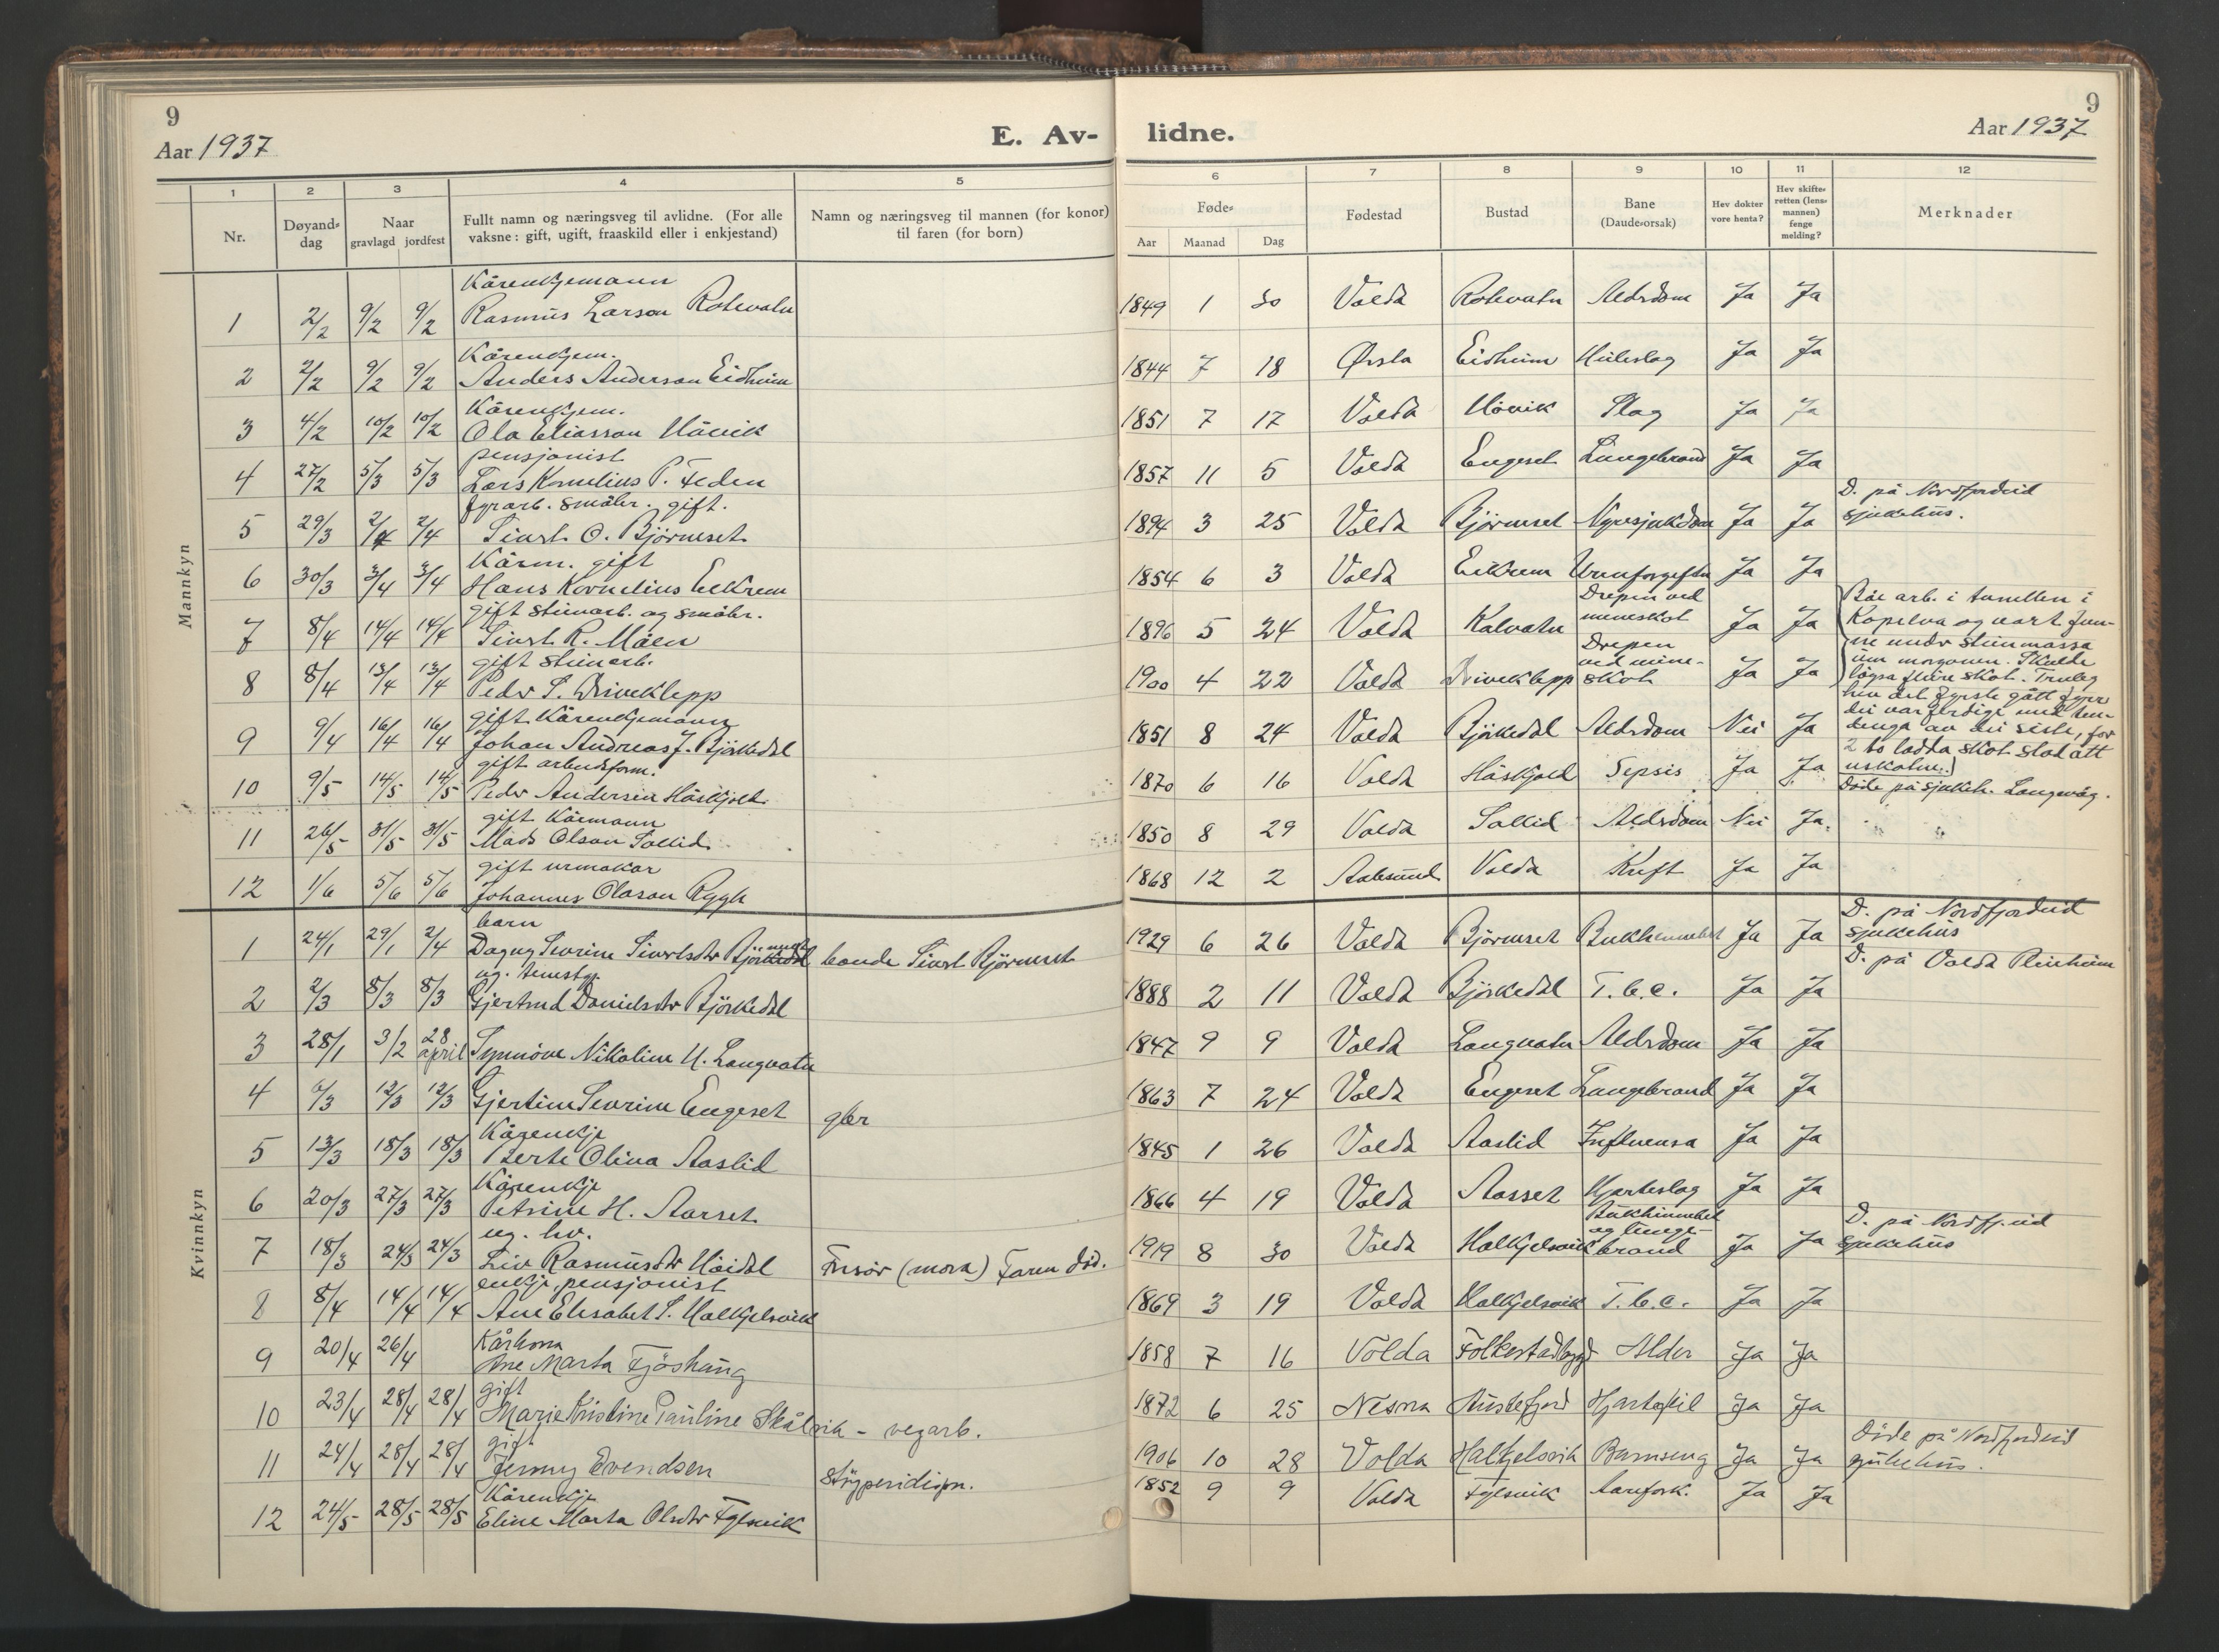 9
Aar 1937
E. Av-
1 2 3 4 5
Nr.
Døyand-
dag
Naar
gravlagd jordfest
Fullt namn og næringsveg til avlidne. (For alle
vaksne: gift, ugift, fraaskild eller i enkjestand)
Namn og næringsveg til mannen (for konor)
til faren (for born)
Mannkyn
Kårenkjemann
1 2/2 9/2 9/2 Rasmus Larson Rotevatn
Kårenkjem.
2 2/2 9/2 9/2 Anders Anderson Eidheim
Kårenkjem.
3 4/2 10/2 10/2 Ola Eliasson Håvik
pensjonist
4 27/2 5/3 5/3 Lars Kornelius P.
fyrarb. småbr. gift.
5 29/3 2/4 2/4 Sivert O. Bjørneset
Kårm. gift
6 30/3 3/4 3/4 Hans Kornelius Eikrem
gift steinarb. og småbr.
7 8/4 14/4 14/4 Sivert R. Måen
gift steinarb.
8 8/4 13/4 13/4 Peder S. Driveklepp
gift Kårenkjemann
9 9/4 16/4 16/4 Johan Andreas J. Bjørkedal
gift arbeidsform.
10 9/5 14/5 14/5 Peder Andersen Håskjold
gift Kårmann
11 26/5 31/5 31/5 Mads Olson Sollid
gift urmakar
12 1/6 5/6 5/6 Johannes Olason Rygh
Kvinnkyn
barn
1 24/1 29/1 2/4 Dagny Severine Sivertsdtr bonde Sivert Bjørneset
ug. tenestgj.
2 2/3 8/3 8/3 Gjertrud Danielsdtr Bjørkedal
3 28/1 3/2 28 april Synnøve Nikoline U. Langvatn
4 12/3 12/3 Gjertine Severine Engeset gbr
Kårenkje
5 13/3 18/3 18/3 Berte Oliva Aaslid
Kårenkje
6 20/3 27/3 27/3 Petrine H. Aarset
ug. hv.
7 18/3 24/3 24/3 Liv Rasmusdtr Høidal Frisør (mora) Faren död.
enkje, pensjonist
8 8/4 14/4 14/4 Ane Elisabet S. Halkjelsvik
Kårkona
9 20/4 26/4 Ane Marta Fjøshaug
gift
10 23/4 28/4 28/4 Marie Kristine Pauline Skålvik - vegarb.
gift
11 24/4 28/4 28/4 Jenny Evendsen
Kårenkje
12 24/5 28/5 28/5 Eline Marta Olsdtr Fylsvik
9
lidne.
Aar 1937
6 7 8 9 10 11 12
Føde-
Aar Maanad Dag
Fødestad
Bustad
Bane
(Daude-orsak)
Hev dokter
vore henta?
Hev skifte-
retten (lens-
mannen)
fenge
melding?
Merknader
1849 1 30 Volda Rotevatn Aldrdom Ja Ja
1844 7 18 Ørsta Eidheim Heileslag Ja Ja
1851 7 17 Volda Håvik Slag Ja Ja
1857 11 5 Volda Engeset Lungebrand Ja Ja
1894 3 25 Volda Bjørneset Nyresjukdom Ja Ja D. på Nordfjordeid
sjukehus.
1854 6 3 Volda Eikrem Urinforgiftn Ja Ja
1896 5 24 Volda Kalvatn Drepen ved
mineskot Ja Ja
1900 4 22 Volda Driveklepp Drepen
ved mine-
skot Ja Ja
Båe arb. i tunellen i
Kopelva og vart fun-
ne under steinmassa
um morgonen. Skulde
løysa fleire skot. Truleg
hev det fyrste gått fyrr
dei var ferdige med ten-
dinga av dei siste, for
2 to ladda skot stod att
uskotne.)
1851 8 24 Volda Bjørkedal Aldrdom Nei Ja
1870 6 16 Volda Håskjold Sepsis Ja Ja Döde på sjukeh. Langevåg.
1850 8 29 Volda Sollid Aldrdom Nei Ja
1868 12 2 Aalesund Volda Kreft Ja Ja
1929 6 26 Volda Bjørneset Bukhinnebet Ja Ja D. på Nordfjordeid
sjukehus
1888 2 11 Volda Bjørkedal T.b.c. Ja Ja D. på Volda Pleieheim
1847 9 9 Volda Langvatn Aldrdom Ja Ja
1863 7 24 Volda Engeset Lungebrand Ja Ja
1845 1 26 Volda Aaslid Influensa Ja Ja
1866 4 19 Volda Aarset Hjarteslag Ja Ja
1919 8 30 Volda Halkjelsvik Bukhinnebet
og lunge-
brand Ja Ja D. på Nordfj.eid
sjukehus
1869 3 19 Volda Halkjelsvik T.b.c. Ja Ja
1858 7 16 Volda Folkestadbygd Alder Ja Ja
1872 6 25 Nesna Austefjord Hjartefeil Ja Ja
1906 10 28 Volda Halkjelsvik Barnseng Ja Ja Döde på Nordfjordeid
sjukehus.
1852 9 9 Volda Fylsvik Aarefork. Ja Ja